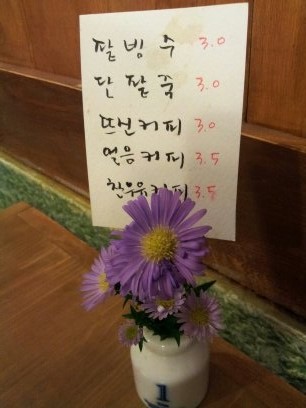 팥빙수 3.0
단팥죽 3.0
뜨신커피 3.0
얼음커피 3.5
찬우유커피 3.5
1